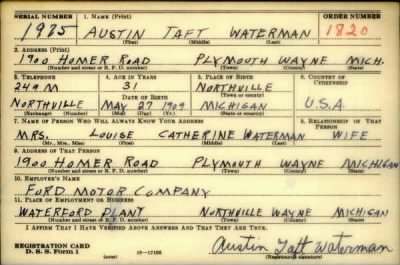 SERIAL NUMBER 1. NAME (Print) ORDER NUMBER
1975 AUSTIN TAFT WATERMAN 1820
(First) (Middle) (Last)
2. ADDRESS (Print)
1900 HOMER ROAD PLYMOUTH WAYNE MICH.
(Number and street or R. F. D. number) (Town) (County) (State)
3. TELEPHONE 4. AGE IN YEARS 5. PLACE OF BIRTH 6. COUNTRY OF CITIZENSHIP
249M 31 NORTHVILLE
DATE OF BIRTH
NORTHVILLE MAY 27 1909 MICHIGAN U.S.A.
(Exchange) (Number) (Mo.) (Day) (Yr.) (State or country)
7. NAME OF PERSON WHO WILL ALWAYS KNOW YOUR ADDRESS 8. RELATIONSHIP OF THAT PERSON
MRS. LOUISE CATHERINE WATERMAN WIFE
(Mr., Mrs., Miss) (First) (Middle) (Last)
9. ADDRESS OF THAT PERSON
1900 HOMER ROAD PLYMOUTH WAYNE MICHIGAN
(Number and street or R. F. D. number) (Town) (County) (State)
10. EMPLOYER'S NAME
FORD MOTOR COMPANY
11. PLACE OF EMPLOYMENT OR BUSINESS
WATERFORD PLANT NORTHVILLE WAYNE MICHIGAN
(Number and street or R. F. D. number) (Town) (County) (State)
I AFFIRM THAT I HAVE VERIFIED ABOVE ANSWERS AND THAT THEY ARE TRUE.
REGISTRATION CARD
D. S. S. Form 1 (over) Austin Taft Waterman
(Registrant's signature)